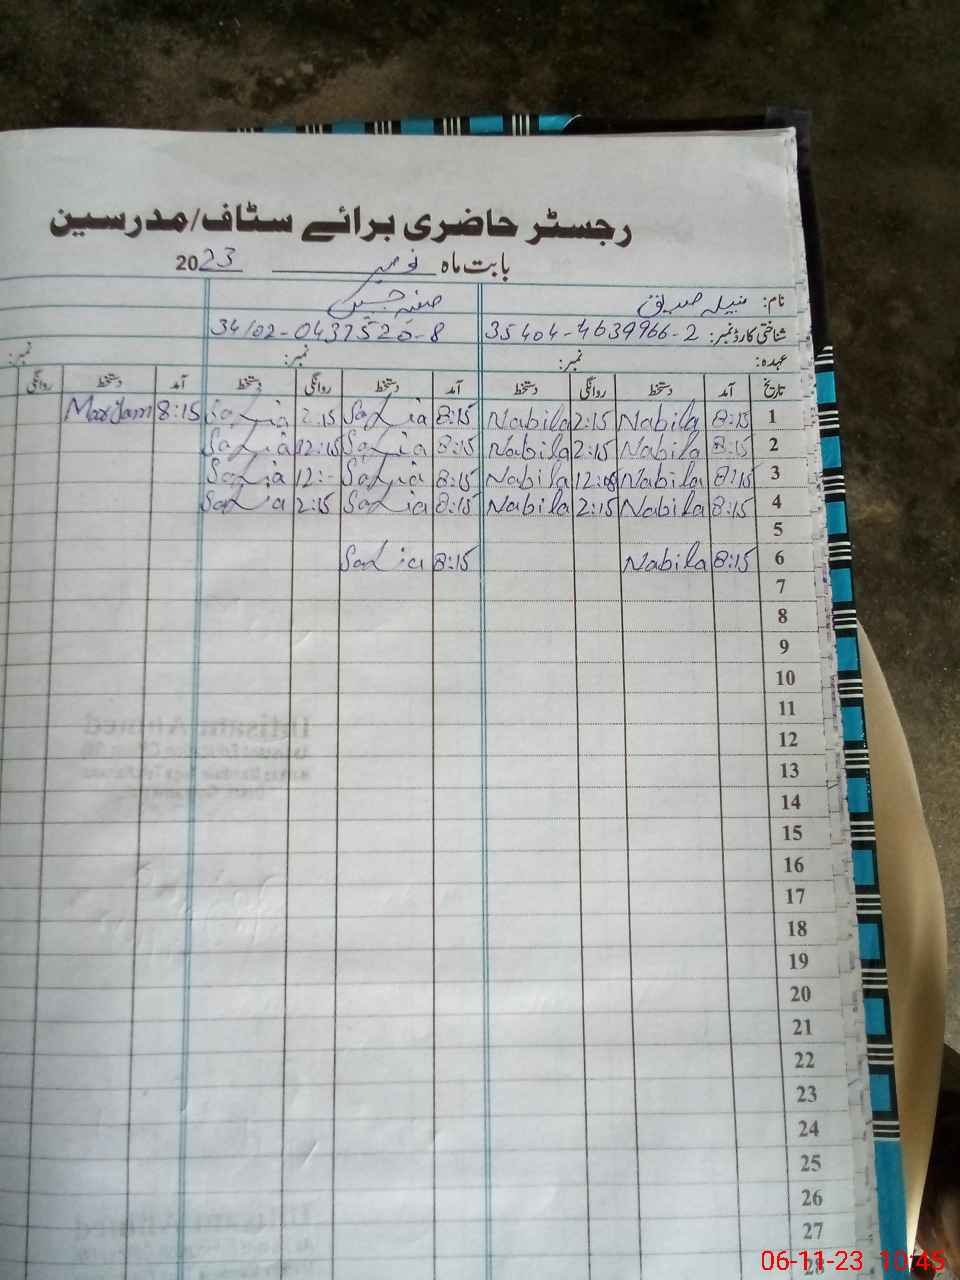 رجسٹر حاضری برائے سٹاف/مدرسین
بابت ماہ نومبر 2023
نام: نبیلہ صدیق
شناختی کارڈ نمبر: 35404-4639966-2 34102-0437520-8
عہدہ: نمبر: نمبر: نمبر:
تاریخ آمد دستخط روانگی دستخط آمد دستخط روانگی دستخط آمد دستخط روانگی
1 8:15 Nabila 2:15 Nabila 8:15 Sadia 2:15 Sadia 8:15 Maryam
2 8:15 Nabila 2:15 Nabila 8:15 Sadia 12:15 Sadia
3 8:15 Nabila 12:05 Nabila 8:15 Sadia 12:- Sadia
4 8:15 Nabila 2:15 Nabila 8:15 Sadia 2:15 Sadia
5
6 8:15 Nabila 8:15 Sadia
7
8
9
10
11
12
13
14
15
16
17
18
19
20
21
22
23
24
25
26
27
28
06-11-23 10:45